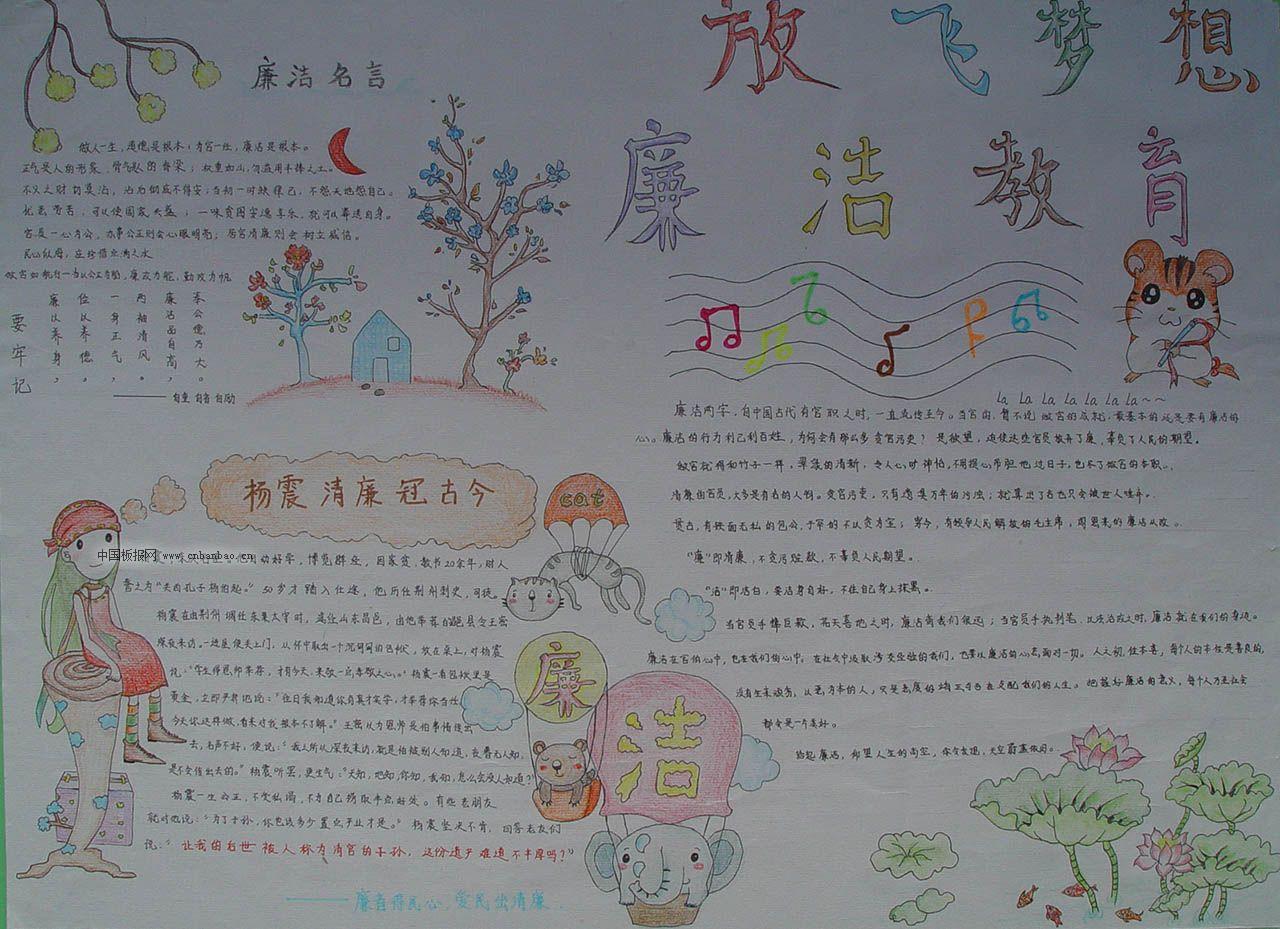 放飞梦想
廉洁教育
廉洁名言
做人一生，道德是根本；为官一任，廉洁是根本。
正气是人的形象，骨气是人的脊梁；权重如山，勿滥用半捧之土。
不义之财切莫沾，沾为倒底不得安；当初一时缺律己，不怨天地怨自己。
忧患劳苦，可以使国家兴盛；一味贪图安逸享乐，就可以葬送自身。
官员一心为公，办事公正则会心眼明亮；居官清廉则会树立威信。
民心似海，应珍惜
做官如航行一为以公正为船，廉政为舵，勤政为帆
要牢记
奉公德乃大。
廉洁品自高，
两袖清风
一身正气。
位以养德。
廉以养身，
——自重 自省 自励
La La La La La La La~~
廉洁两字，自中国古代有官职之时，一直流传至今。当官的，暂不说做官的成就，最基本的还是要有廉洁的
心。廉洁的行为利己利百姓，为何会有那么多贪官污吏？是欲望，迫使这些官员放弃了廉，辜负了人民的期望。
做官就得和竹子一样，翠绿的清新，令人心旷神怡，不用提心吊胆地过日子，也尽了做官的本职。
清廉的百员，大多是有名的人物。贪官污吏，只有遗臭万年的污浊；就算出了名也只会被世人唾弃。
贯古，有铁面无私的包公，于罕的不以贪为宝；举今，有领导人民解放的毛主席，周恩来的廉洁从政。
“廉”即清廉，不贪污赃款，不辜负人民期望。
“洁”即洁白，要洁身自好，不往自己身上抹黑。
当官员手捧巨款，花天喜地之时，廉洁离我们很远；当官员手执刺笔，以决治政之时，廉洁就在我们的身边。
廉洁在官的心中，也在我们的心中。在社会中汲取
人之初，性本善，每个人的本性是善良的，
把最好廉洁的意义，每个人乃至社会
都会是一片美好。
拾起廉洁，仰望人生的高空，你会发现，天空蔚蓝依旧。
杨震清廉冠古今
cat
中国板报网 www.cnbanbao.cn
幼好学，博览群经，因家贫，教书20余年，时人
誉之为“关西孔子杨伯起。”50岁才踏入仕途，他历任荆州刺史，司徒。
杨震在由荆州调任东莱太守时，途径山东昌邑，由他举荐的昌邑县令王密
深夜来访。一进屋便关上门，从怀中取出一个沉甸甸的包袱，放在桌上，对杨震
说：“学生得恩师举荐，才有今天，来敬一点孝敬之心。”杨震一看包袱里是
黄金，立即严肃地说：“往日我知道你有真才实学，才举荐你当仕
今天你这样做，看来对我根本不了解。”王密认为恩师是怕事情传出
去，名声不好，便说：“我之所以深夜来访，就是怕被别人知道，夜昏无人知，
是不会传出去的。”杨震听罢，更生气：“天知，地知，你知，我知，怎么会没人知道？”
杨震一生公正，不受私谒，不为自己捞取半点好处。有些老朋友
就对他说：“为了子孙，你也该多少置点产业才是。”杨震坚决不肯，回答老友们
说：“让我的后世被人称为清官的子孙，这份遗产难道不丰厚吗？”
——廉者得民心，爱民出清廉.
廉
洁